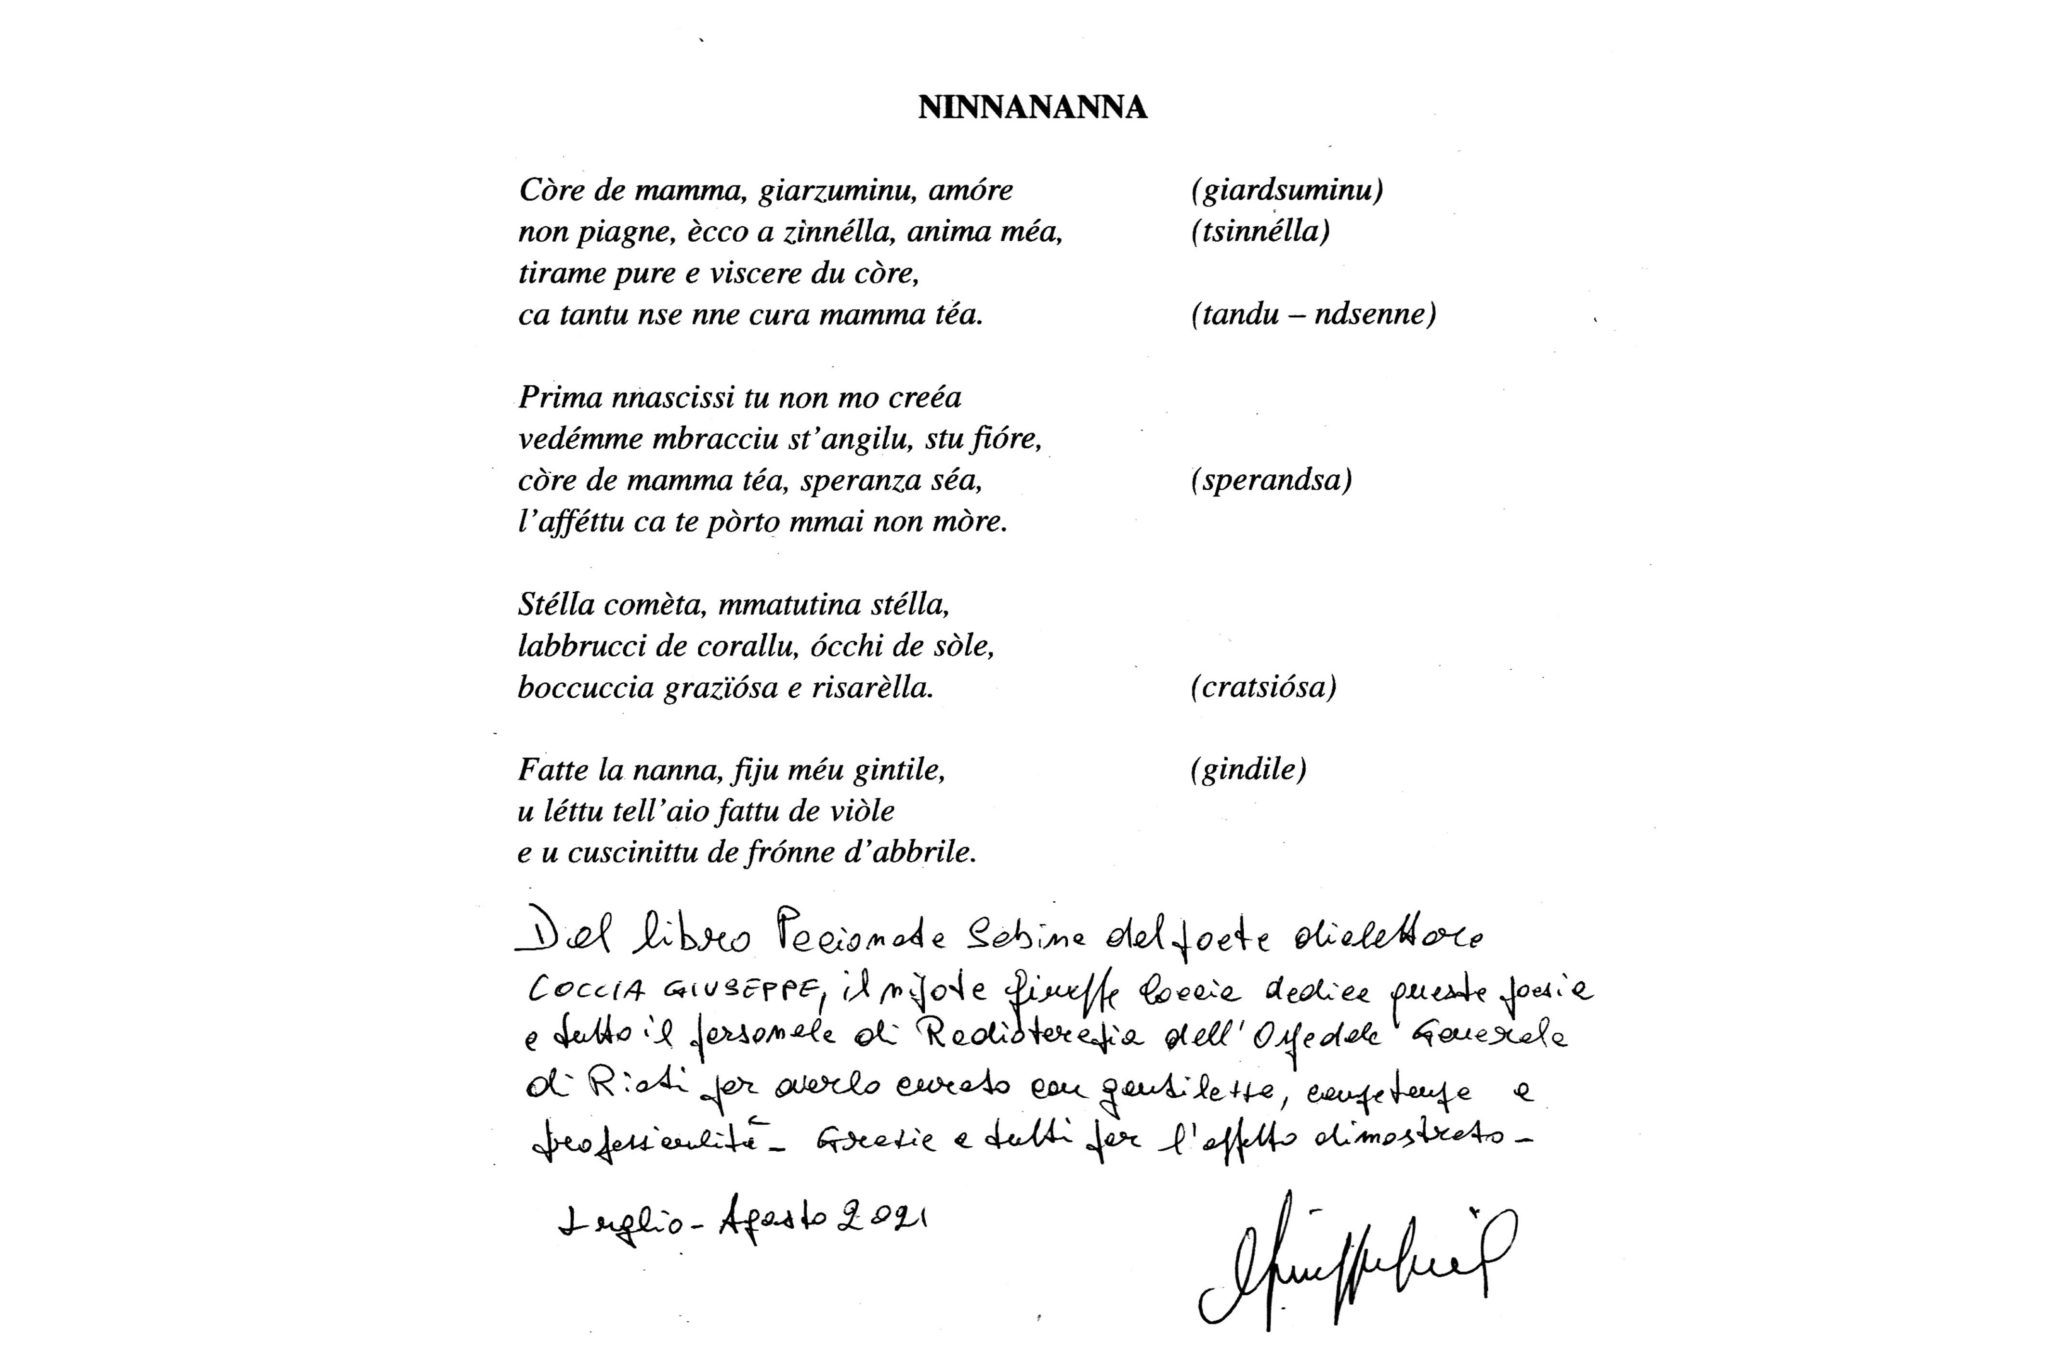 NINNANANNA
Còre de mamma, giarzuminu, amóre (giardsuminu)
non piagne, ècco a zinnélla, anima méa, (tsinnélla)
tirame pure e viscere du còre,
ca tantu nse nne cura mamma téa. (tandu – ndsenne)
Prima nnascissi tu non mo creéa
vedémme mbracciu st'angilu, stu fióre,
còre de mamma téa, speranza séa, (sperandsa)
l'afféttu ca te pòrto mmai non mòre.
Stélla comèta, mmatutina stélla,
labbrucci de corallu, ócchi de sòle,
boccuccia grazïósa e risarèlla. (cratsiósa)
Fatte la nanna, fiju méu gintile, (gindile)
u léttu tell'aio fattu de viòle
e u cuscinittu de frónne d'abbrile.
Dal libro Sabina del poeta dialettare
COCCIA GIUSEPPE, il nipote Giuseppe Coccia dedica questa poesia
a tutto il personale di Radioterapia dell'Ospedale Generale
di Rieti per averlo curato con gentilezza, competenza e
professionalità - Grazie a tutti per l'affetto dimostrato -
Luglio - Agosto 2021